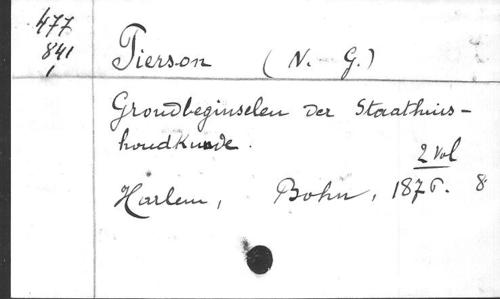 477
841
1
Pierson (N. G.)
Grondbeginselen der Staathuis-
houdkunde.
2 Vol
Harlem, Bohn, 1875. 8